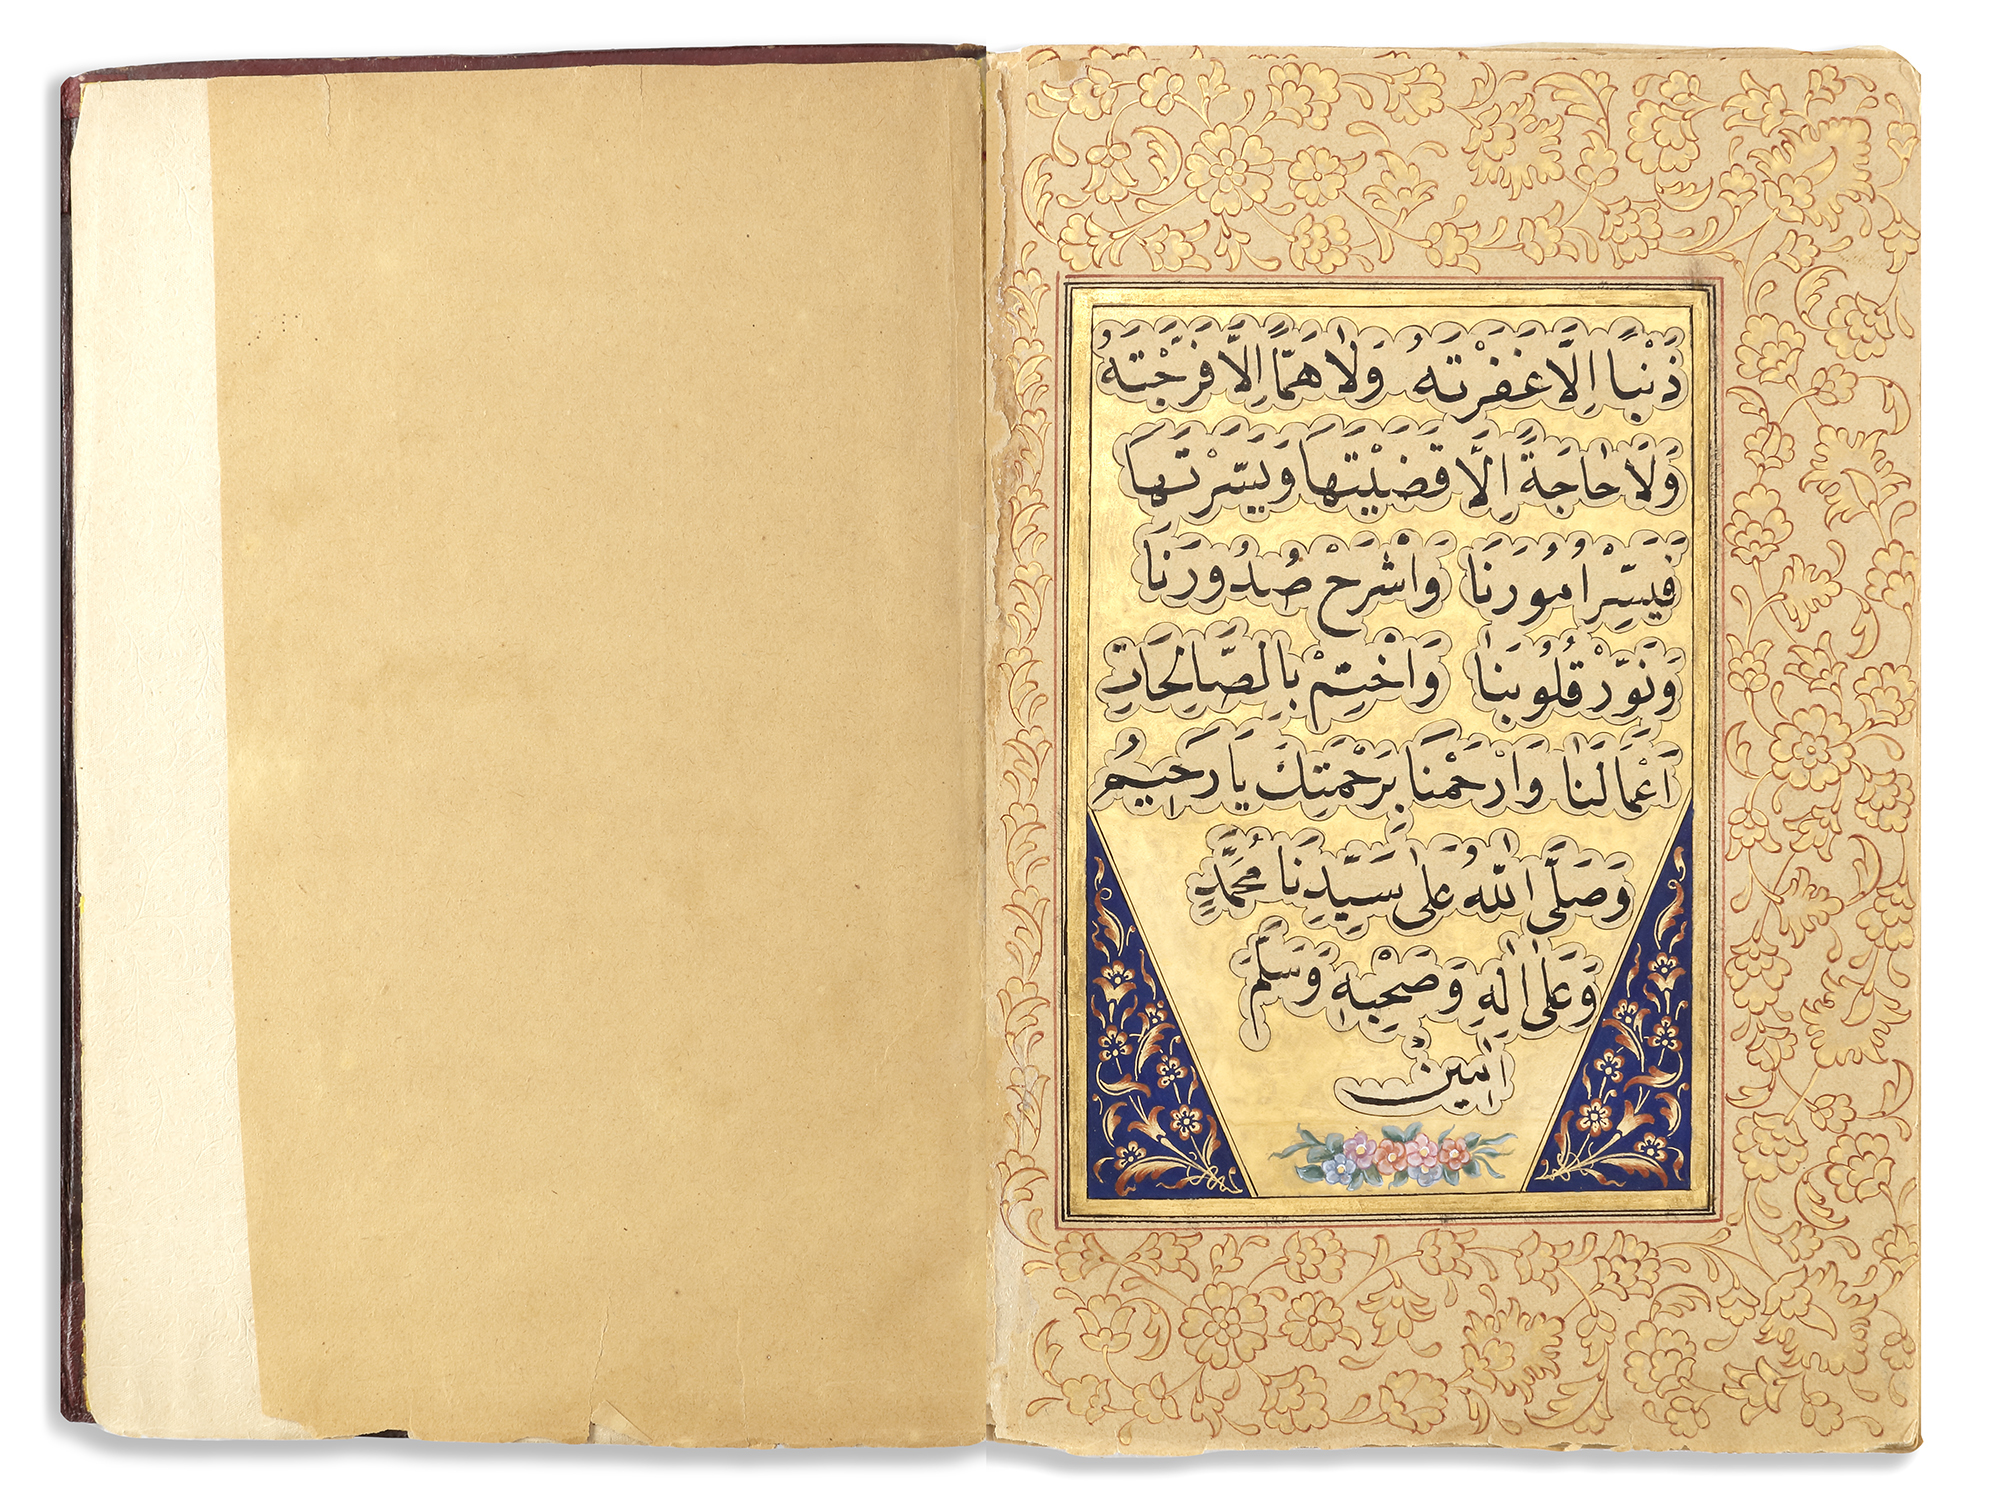 ذَنْبًا اِلَّا غَفَرْتَهُ وَلَا هَمًّا اِلَّا فَرَّجْتَهُ
وَلَا حَاجَةً اِلَّا قَضَيْتَهَا وَيَسَّرْتَهَا
فَيَسِّرْ اُمُورَنَا وَاشْرَحْ صُدُورَنَا
وَنَوِّرْ قُلُوبَنَا وَاخْتِمْ بِالصَّالِحَاتِ
اَعْمَالَنَا وَارْحَمْنَا بِرَحْمَتِكَ يَا رَحِيمُ
وَصَلَّى اللّٰهُ عَلٰى سَيِّدِنَا مُحَمَّدٍ
وَعَلٰى اٰلِهِ وَصَحْبِهِ وَسَلَّمَ
اٰمِينْ